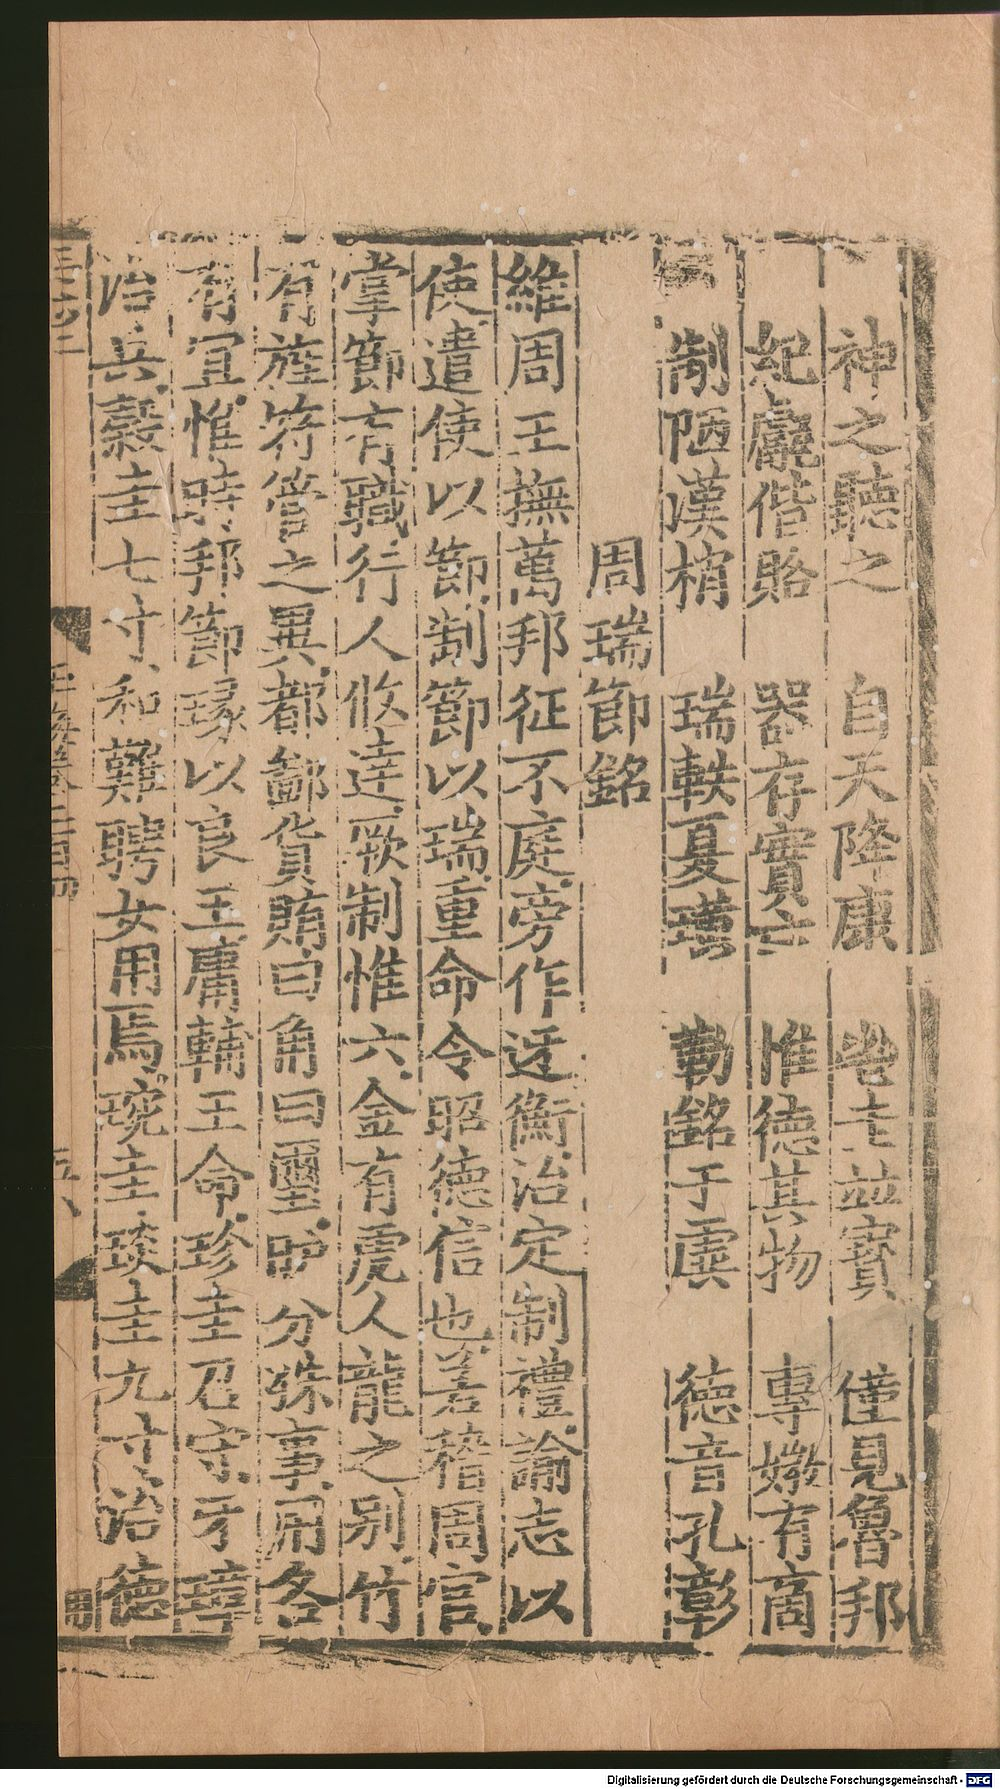 神之聽之 自天降康 壺 並寶 僅見魯邦
紀甗偕賂 器存實亡 惟德其物 專媺有商
制陋漢梢 瑞軼夏璜 勒銘于虡 德音孔彰
周瑞節銘
維周王撫萬邦征不庭旁作迓衡治定制禮諭志以
使遣使以節制節以瑞重命令昭德信也若稽周官
掌節有職行人攸達厥制惟六金有虎人龍之別竹
有旌符管之異都鄙貨賄曰角曰璽 分殊事用各
有宜惟時邦節瑑以良玉庸輔王命珍圭召守牙璋
治兵穀圭七寸和難聘女用焉琬圭琰圭九寸治德
玉海卷二百四
Digitalisierung gefördert durch die Deutsche Forschungsgemeinschaft - DFG